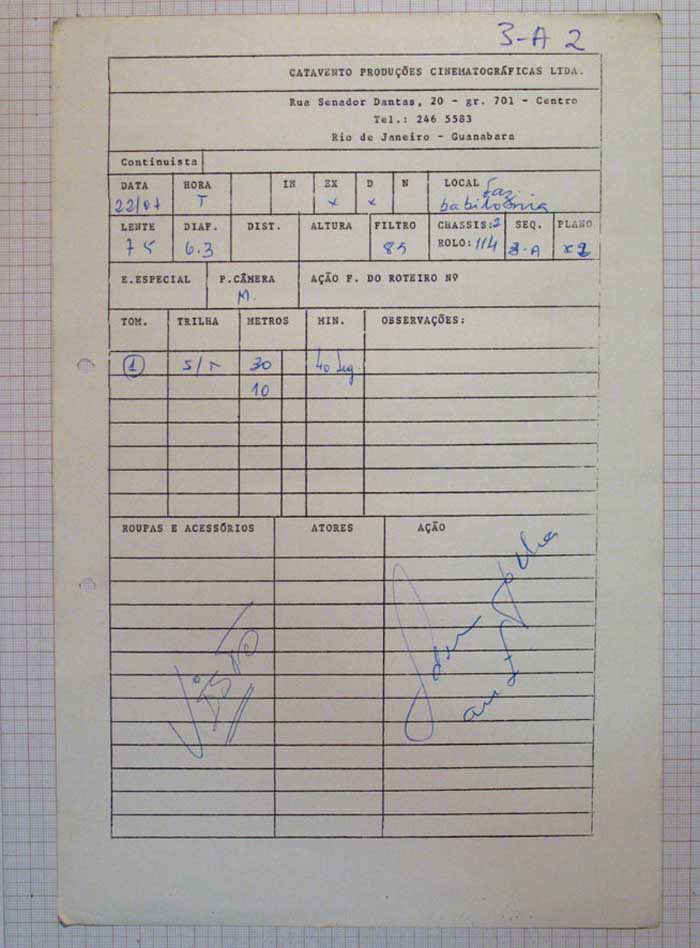 3-A 2
CATAVENTO PRODUÇÕES CINEMATOGRÁFICAS LTDA.
Rua Senador Dantas, 20 - gr. 701 - Centro
Tel.: 246 5583
Rio de Janeiro - Guanabara
Continuista
DATA HORA IN EX D N LOCAL faz.
22/07 T x x babilônia
LENTE DIAF. DIST. ALTURA FILTRO CHASSIS: 2 SEQ. PLANO
75 6.3 85 ROLO: 114 3-A 2
E.ESPECIAL P.CÂMERA AÇÃO P. DO ROTEIRO Nº
M.
TOM. TRILHA METROS MIN. OBSERVAÇÕES:
1 S/T 30 40 seg.
10
ROUPAS E ACESSÓRIOS ATORES AÇÃO
VISTO